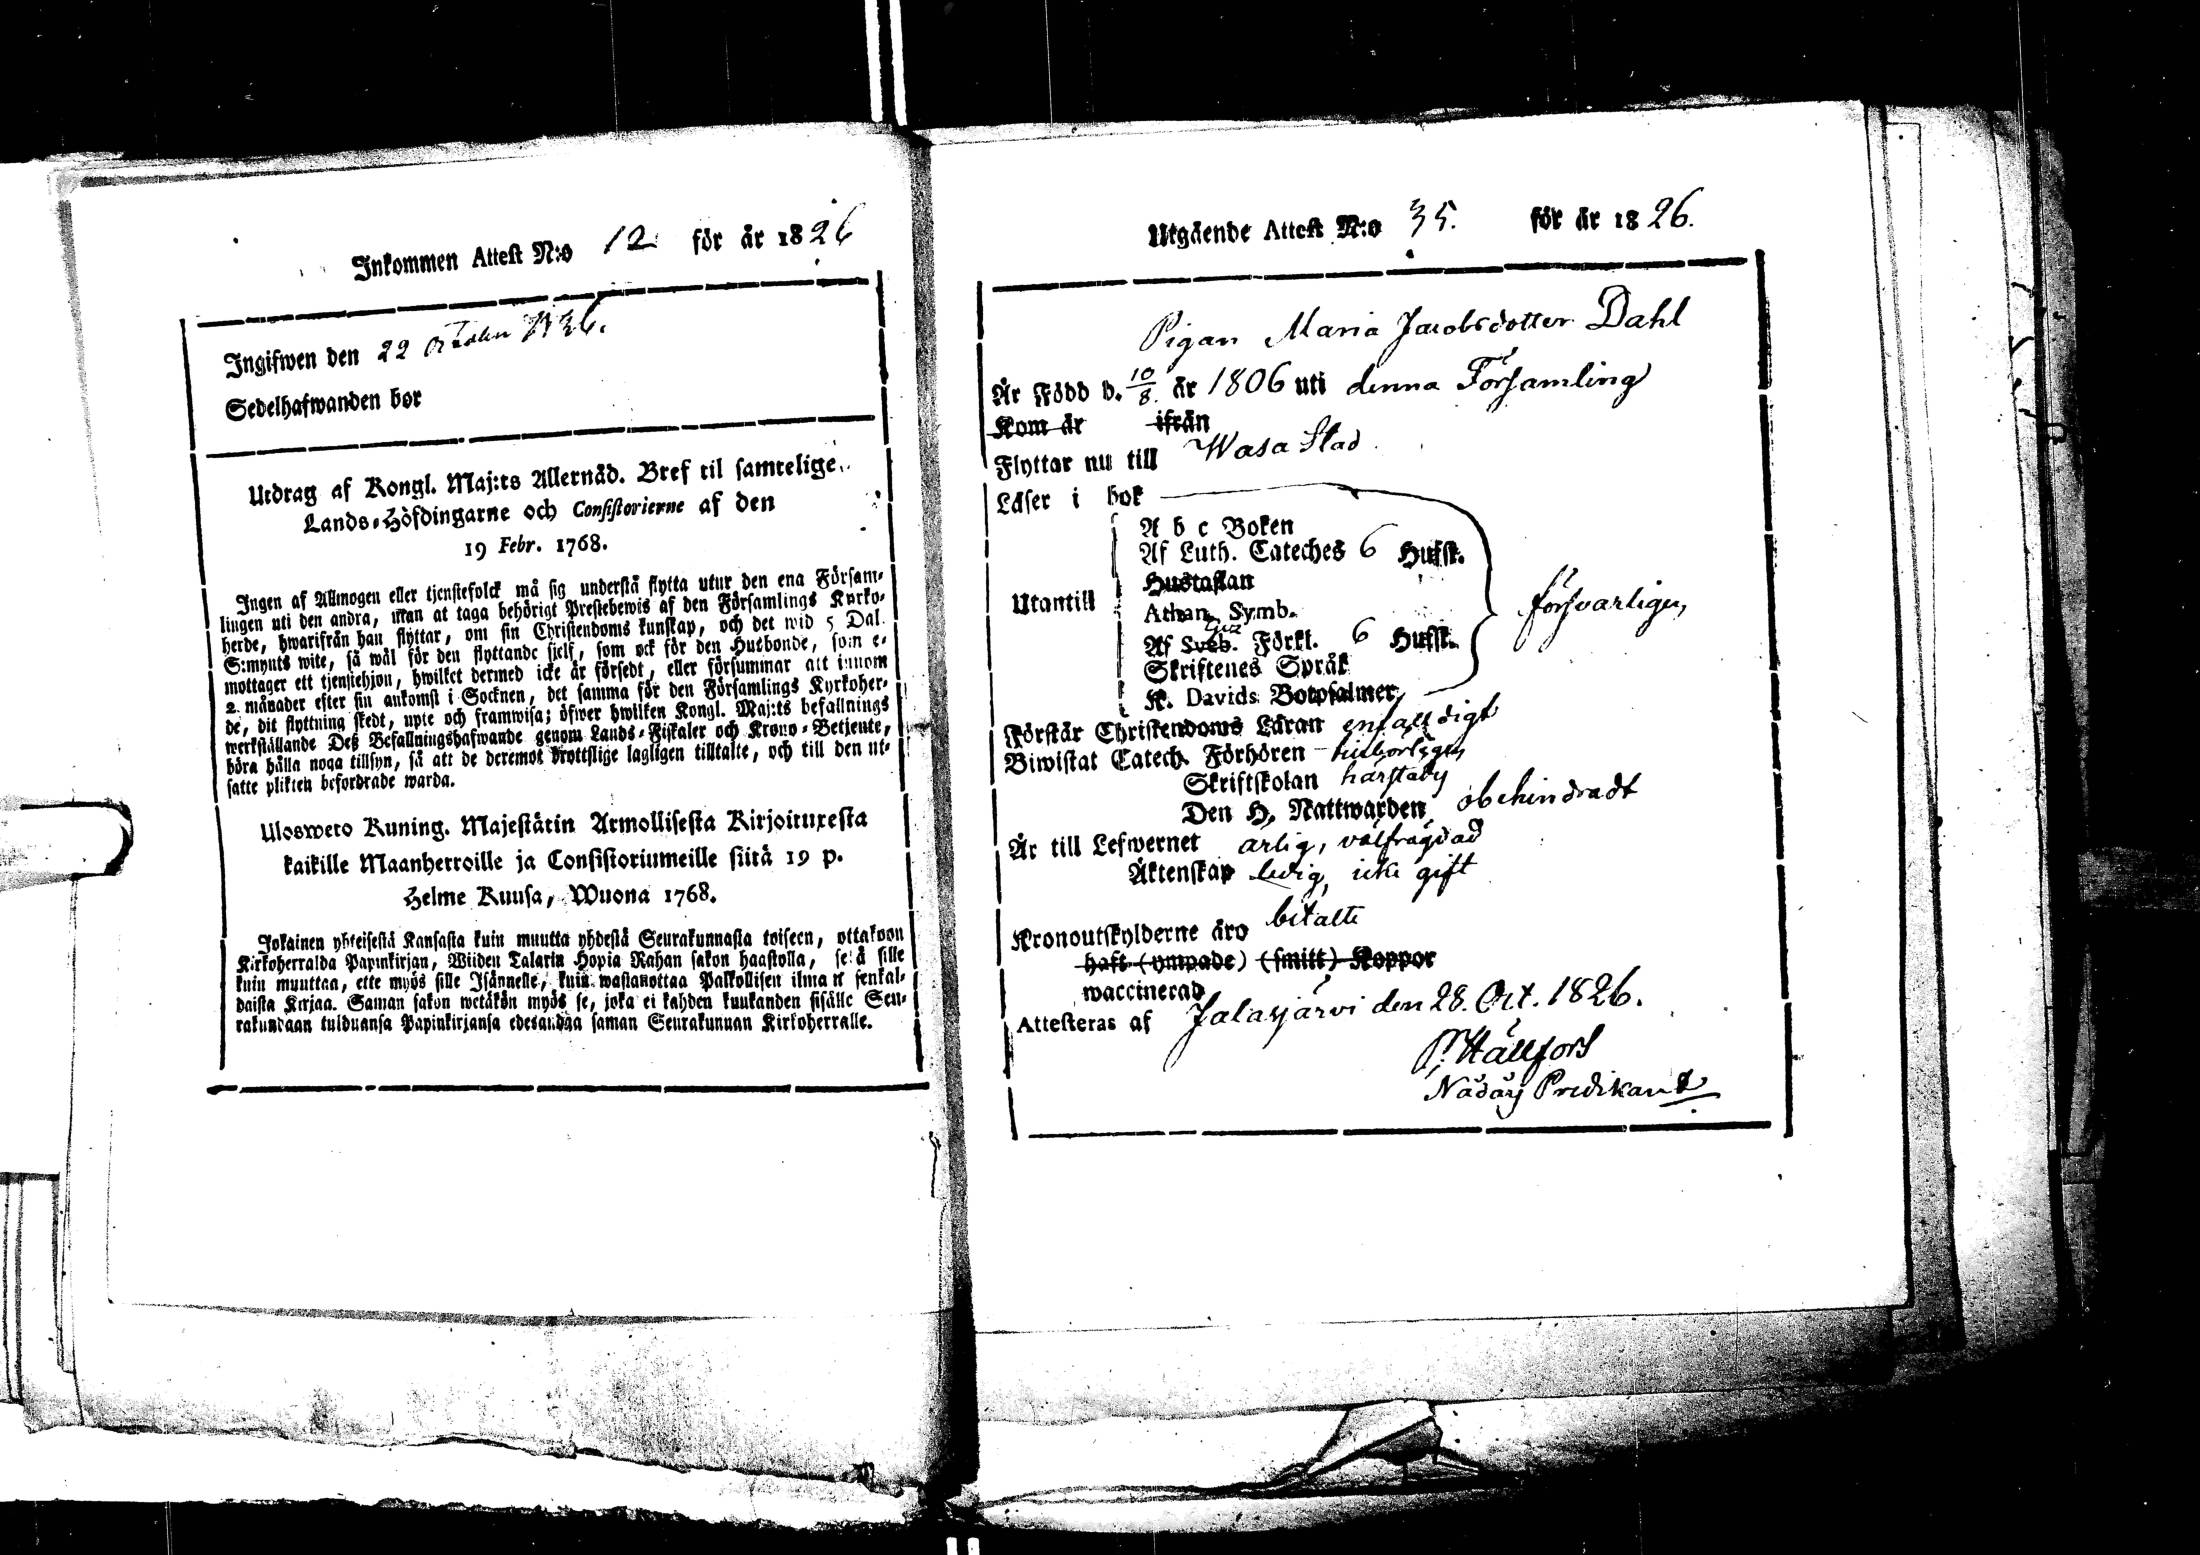 Inkommen Attest N:o 12 för år 1826
Ingifwen den 22 October 1826.
Sedelhafwanden bor
Utdrag af Kongl. Maj:ts Allernåd. Bref til samtelige
Lands-Höfdingarne och Consistorierne af den
19 Febr. 1768.
Ingen af Allmogen eller tjenstefolck må sig understå flytta utur den ena Försam-
lingen uti den andra, utan at taga behörigt Prestebewis af den Församlings Kyrko-
herde, hwarifrån han flyttar, om sin Christendoms kunskap, och det wid 5 Dal.
S:mynts wite, så wäl för den flyttande sjelf, som ock för den Husbonde, som e-
mottager ett tjenstehjon, hwilket dermed icke är försedt, eller försummar att innom
2. månader efter sin ankomst i Socknen, det samma för den Församlings Kyrkoher-
de, dit flyttning skedt, upte och framwisa; öfwer hwilken Kongl. Maj:ts befallnings
werkställande Deß Befallningshafwande genom Lands-Fiskaler och Krono-Betjente,
böra hålla noga tillsyn, så att de deremot brottslige lagligen tilltalte, och till den ut-
satte plikten befordrade warda.
Ulosweto Kuning. Majestätin Armollisesta Kirjoituxesta
kaikille Maanherroille ja Consistoriumeille siitä 19 p.
Helme Kuusa, Wuona 1768.
Jokainen yhteisestä Kansasta kuin muutta yhdestä Seurakunnasta toiseen, ottakoon
Kirkoherralda Papinkirjan, Wiiden Talarin Hopia Rahan sakon haastolla, sekä sille
kuin muuttaa, ette myös sille Isännelle, kuin wastanottaa Palkollisen ilman senkal-
daista Kirjaa. Saman sakon wetäkön myös se, joka ei kahden kuukanden sisälle Seu-
rakundaan tulduansa Papinkirjansa edesandaa saman Seurakunnan Kirkoherralle.
Utgående Attest N:o 35. för år 1826.
Pigan Maria Jacobsdotter Dahl
År Född d. 10/8. år 1806 uti denna Församling
Kom år ifrån
Flyttar nu till Wasa Stad
Läser i bok
A b c Boken
Af Luth. Cateches 6 Hufst.
Hustaflan
Utantill
Athan. Symb.
försvarligen,
Af Sveb. Förkl. 6 Hufst.
Skriftenes Språk
K. Davids Botpsalmer
Förstår Christendoms Läran enfalldigt
Biwistat Catech. Förhören
Skriftskolan
Den H. Nattwarden obehindradt
Är till Lefwernet ärlig, välfrägdad
Äktenskap ledig, icke gift
Kronoutskylderne äro betalte
haft (ympade) (smitt) Koppor
waccinerad
Attesteras af Jalasjärvi den 28. Oct. 1826.
P. Hällfors
Nådårs Predikant